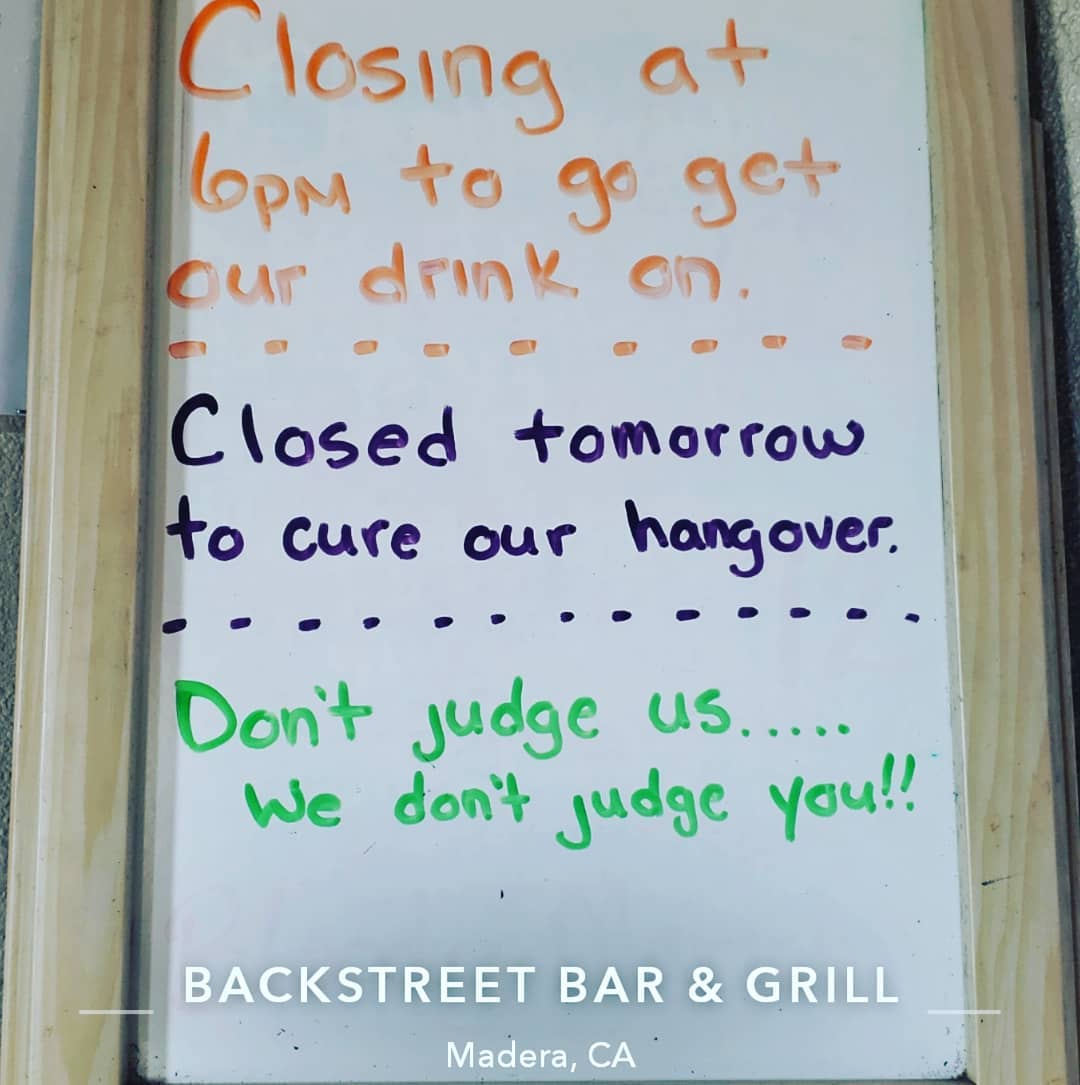 Closing at
6PM to go get
our drink on.
Closed tomorrow
to cure our hangover.
Don't judge us.....
We don't judge you!!
BACKSTREET BAR & GRILL
Madera, CA